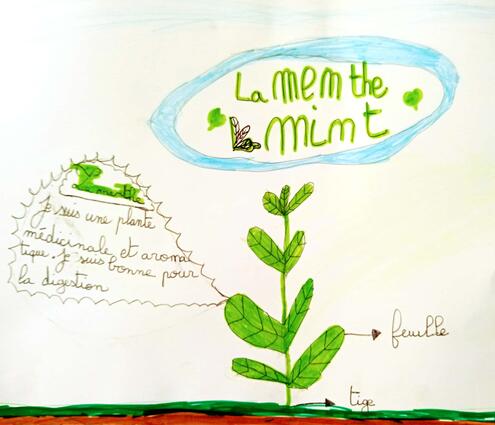 La menthe
mint
La menthe
Je suis une plante
médicinale et aroma
tique. Je suis bonne pour
la digestion
feuille
tige